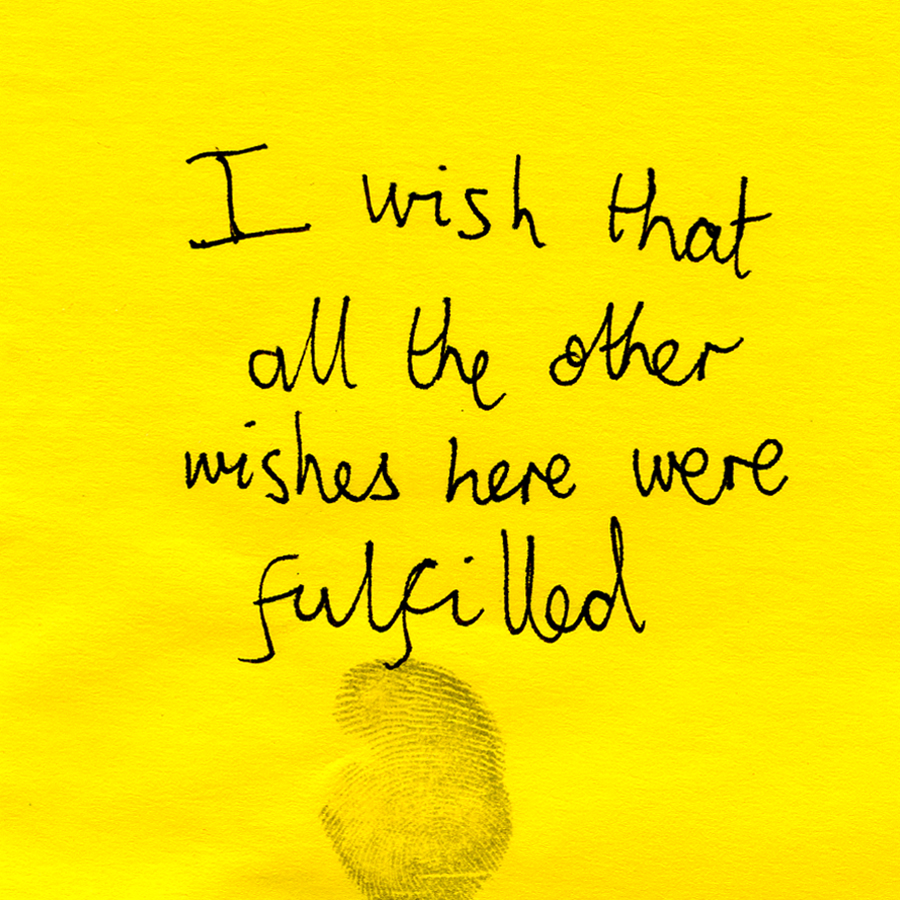 I wish that
all the other
wishes here were
fulfilled